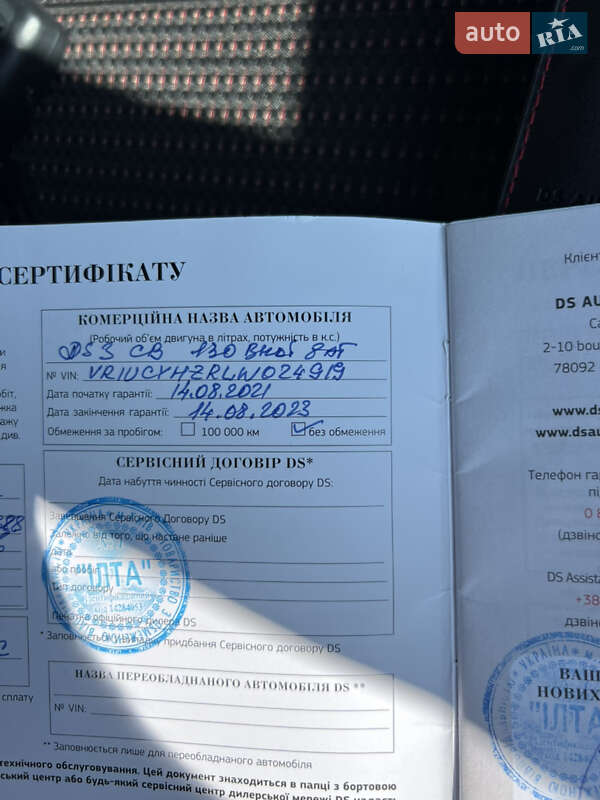 auto RIA .com
СЕРТИФІКАТУ
КОМЕРЦІЙНА НАЗВА АВТОМОБІЛЯ
(Робочий об'єм двигуна в літрах, потужність в к.с.)
DS 3 CB 130 BHDI 8AT
№ VIN: VR1UCYHZRLW024919
Дата початку гарантії: 14.08.2021
Дата закінчення гарантії: 14.08.2023
Обмеження за пробігом: 100 000 км без обмеження
СЕРВІСНИЙ ДОГОВІР DS*
Дата набуття чинності Сервісного договору DS:
Завершення Сервісного Договору DS
залежно від того, що настане раніше
Дата
або пробіг
Тип договору
Печатка офіційного дилера DS
"ІЛТА"
УКРАЇНА
* Заповнюється у випадку придбання Сервісного договору DS
НАЗВА ПЕРЕОБЛАДНАНОГО АВТОМОБІЛЯ DS **
№ VIN:
** Заповнюється лише для переобладнаного автомобіля
технічного обслуговування. Цей документ знаходиться в папці з бортовою
ський центр або будь-який сервісний центр дилерської мережі DS
Клієн
DS AU
2-10 bou
78092
www.ds
www.dsau
Телефон га
0 8
(дзвін
DS Assista
+38
дзвін
УКРАЇНА
ВАШ
НОВИХ
"ІЛТА"